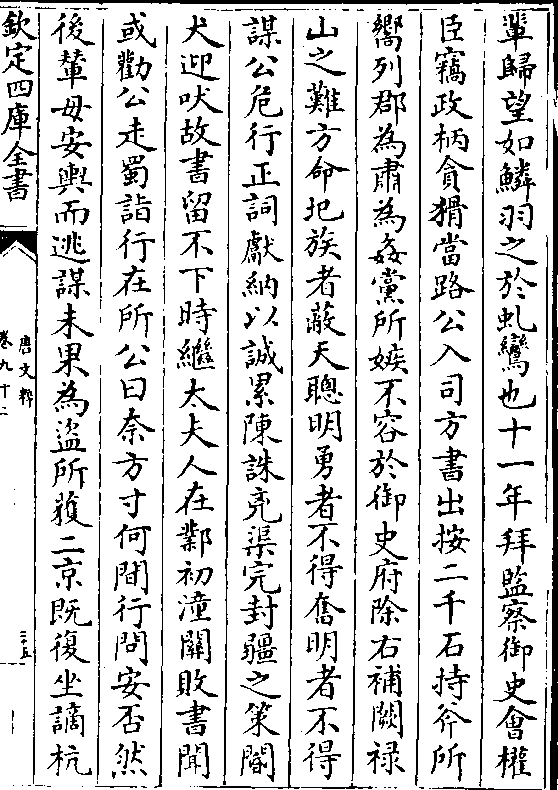 輩歸望如鱗羽之於虬鸞也十一年拜監察御史會權
臣竊政柄貪猾當路公入司方書出按二千石持斧所
嚮列郡為肅為姦黨所嫉不容於御史府除右補闕禄
山之難方命圯族者蔽天聰明勇者不得奮明者不得
謀公危行正詞獻納以誠累陳誅兇渠完封疆之策閽
犬迎吠故書留不下時繼太夫人在鄴初潼關敗書聞
或勸公走蜀詣行在所公曰柰方寸何間行問安否然
後輦母安輿而逃謀未果為盜所獲二京既復坐謫杭
欽定四庫全書
唐文粹
卷九十二